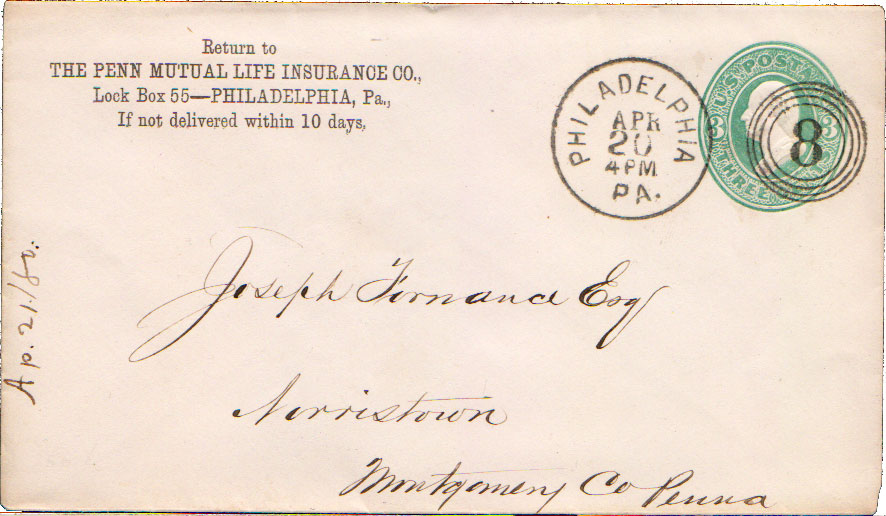 Return to
THE PENN MUTUAL LIFE INSURANCE CO.,
Lock Box 55—PHILADELPHIA, Pa.,
If not delivered within 10 days,
PHILADELPHIA
APR
20
4 PM
PA.
U.S. POSTA
3 3
THREE
8
Joseph Fornance Esq
Norristown
Montgomery Co Penna
Ap. 21./80.